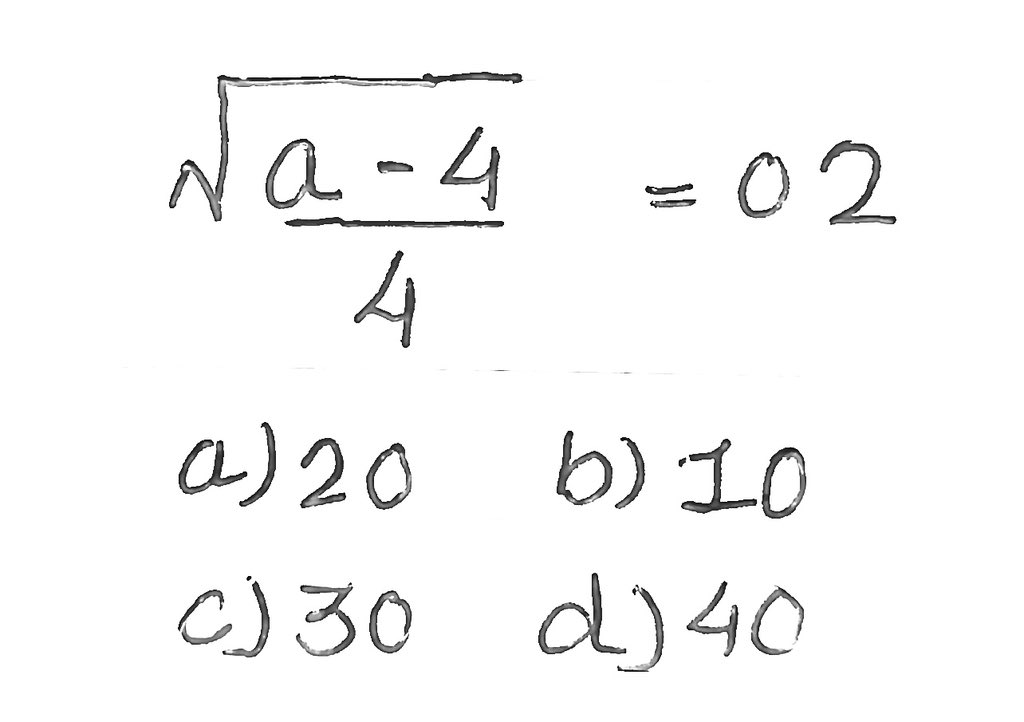 √a - 4 = 02
4
a) 20 b) 10
c) 30 d) 40